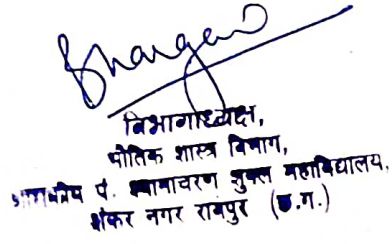 Bhargav
विभागाध्यक्ष,
भौतिक शास्त्र विभाग,
शासकीय पं. श्यामाचरण शुक्ल महाविद्यालय,
शंकर नगर रायपुर (छ.ग.)